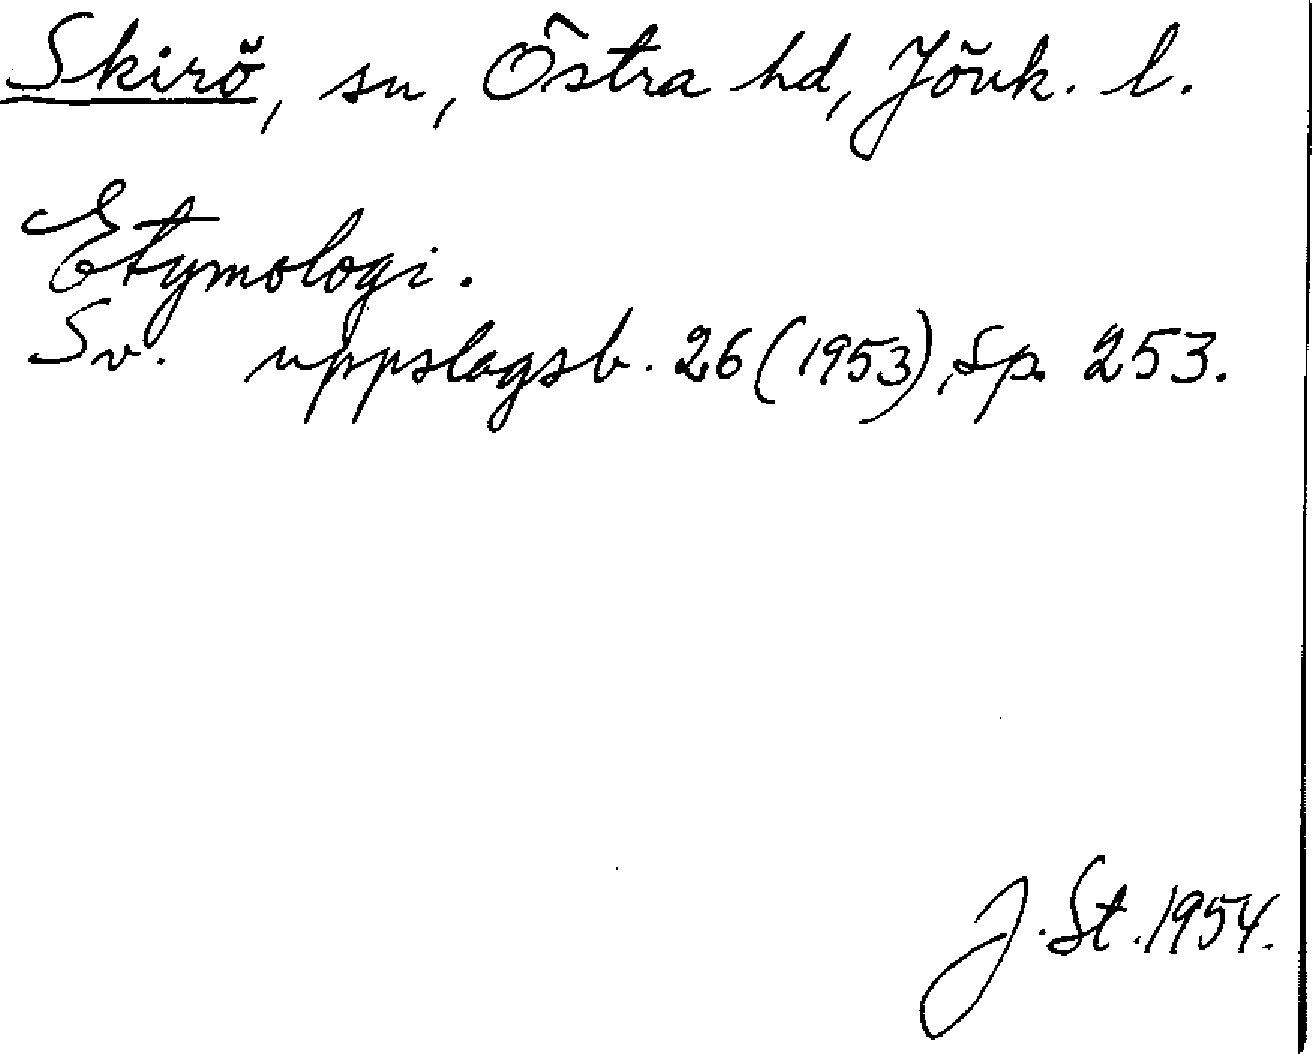 Skirö, sn, Östra hd, Jönk. l.
Etymologi.
Sv. uppslagsb. 26 (1953), sp. 253.
J. St. 1954.